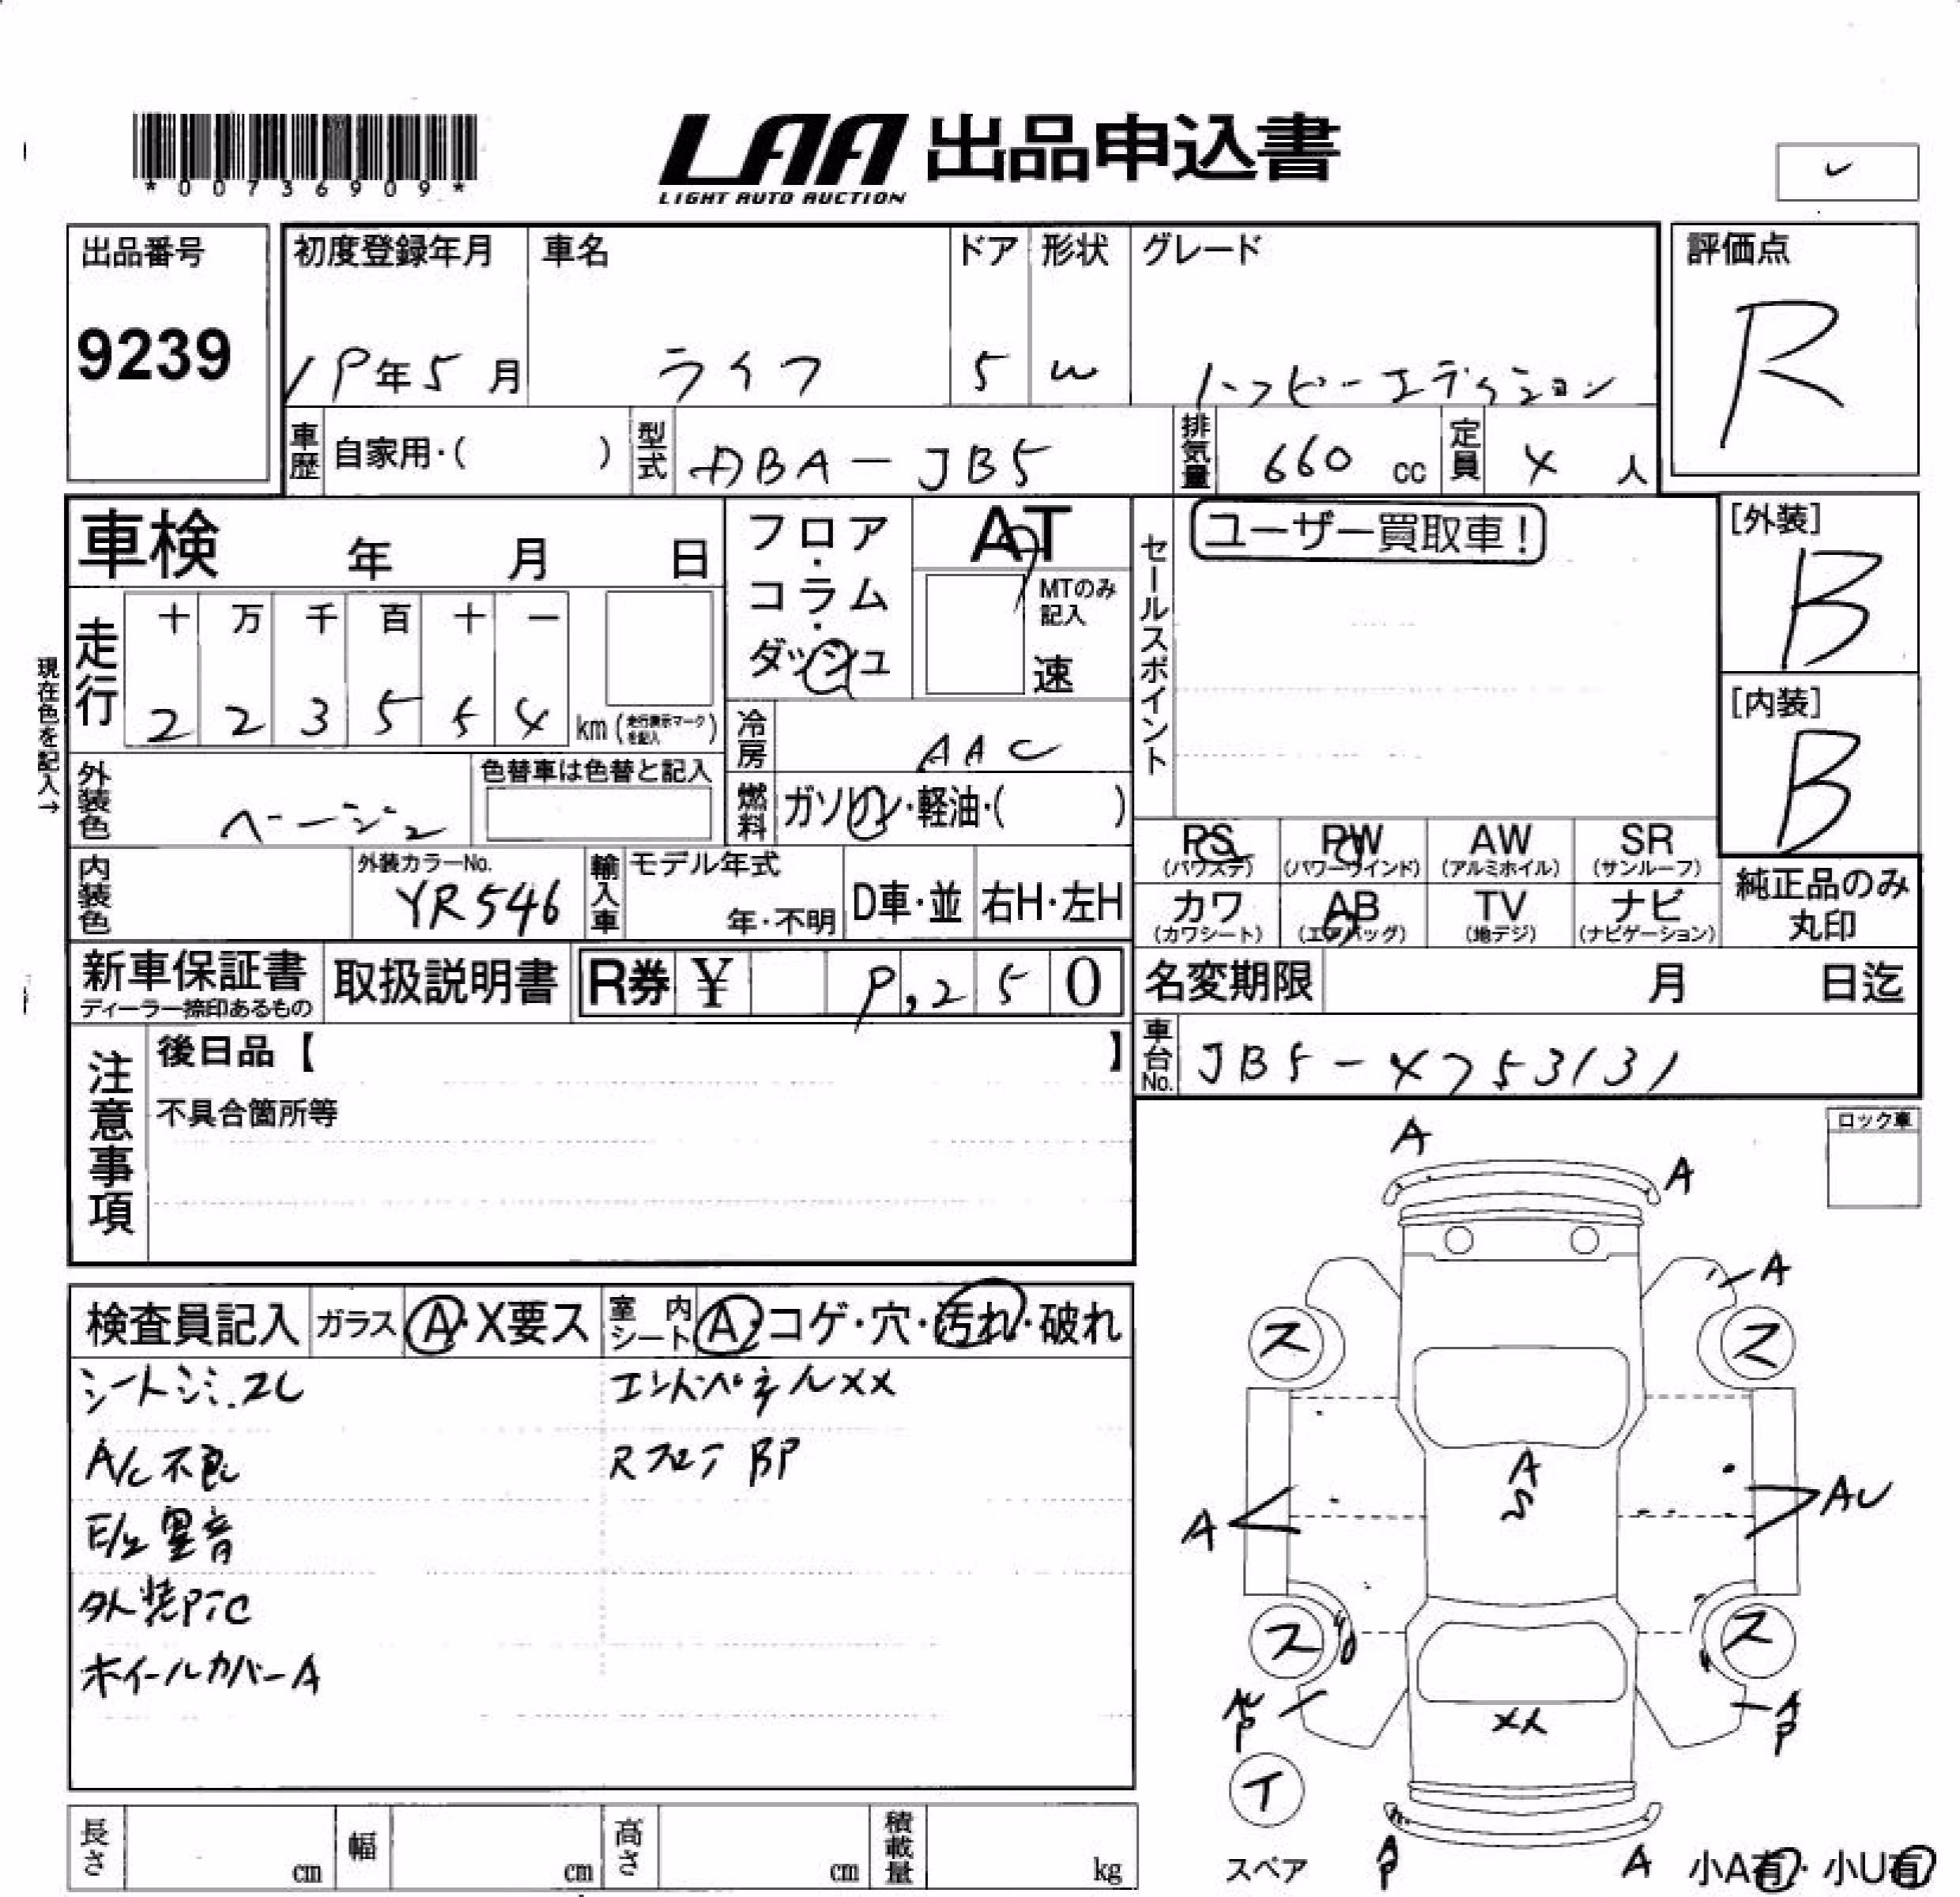 *00736909*
LAA 出品申込書
LIGHT AUTO AUCTION
出品番号 初度登録年月 車名 ドア 形状 グレード 評価点
9239 19年5月 ライフ 5 W ハッピーエディション R
車歴 自家用・( ) 型式 DBA-JB5 排気量 660 cc 定員 4 人
車検 年 月 日
フロア・コラム・ダッシュ
AT
MTのみ記入
速
セールスポイント
ユーザー買取車！
[外装]
B
[内装]
B
現在色を記入→
走行 十 万 千 百 十 一
2 2 3 5 5 4 km (走行表示マークを記入)
冷房 AAC
燃料 ガソリン・軽油・( )
外装色 ベージュ 色替車は色替と記入
内装色 外装カラーNo. YR546 輸入車 モデル年式 年・不明 D車・並 右H・左H
PS (パワステ) PW (パワーウインド) AW (アルミホイル) SR (サンルーフ)
カワ (カワシート) AB (エアバッグ) TV (地デジ) ナビ (ナビゲーション)
純正品のみ丸印
新車保証書 ディーラー捺印あるもの 取扱説明書 R券 ¥ 9,250
名変期限 月 日迄
車台No. JB5-4753131
注意事項
後日品【 】
不具合箇所等
ロック車
検査員記入 ガラス A・X要ス 室内シート A・コゲ・穴・汚れ・破れ
シートシミ.スレ エンドパネルXX
A/C不良
E/g異音
外装PTC
ホイールカバーA
A
A
A
ス ス
A
S
A AU
ス ス
AU
P
XX
A
P
イ
スペア
A
P
A
小A有・小U有
長さ cm 幅 cm 高さ cm 積載量 kg